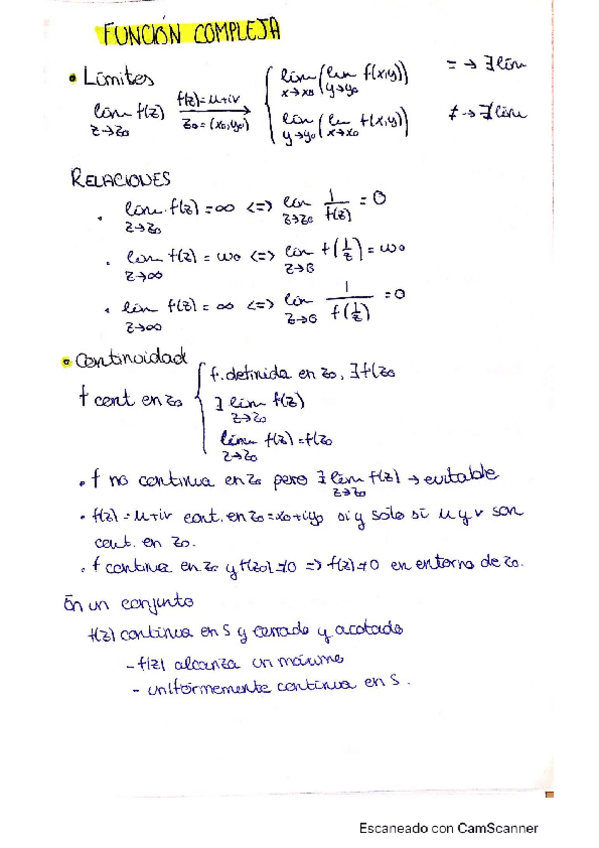 FUNCIÓN COMPLEJA
• Límites
lim f(z) z→z₀ f(z)=u+iv z₀=(x₀,y₀) → { lim x→x₀ (lim y→y₀ f(x,y)) = → ∃ lim
lim y→y₀ (lim x→x₀ f(x,y)) ≠ → ∄ lim
RELACIONES
• lim z→z₀ f(z) = ∞ <=> lim z→z₀ 1/f(z) = 0
• lim z→∞ f(z) = w₀ <=> lim z→0 f(1/z) = w₀
• lim z→∞ f(z) = ∞ <=> lim z→0 1/f(1/z) = 0
• Continuidad
f cont en z₀ { f. definida en z₀, ∃ f(z₀
∃ lim z→z₀ f(z)
lim z→z₀ f(z) = f(z₀
• f no continua en z₀ pero ∃ lim z→z₀ f(z) → evitable
• f(z) = u+iv cont. en z₀=x₀+iy₀ si y solo si u y v son
cont. en z₀.
• f continua en z₀ y f(z₀) ≠0 => f(z)≠0 en entorno de z₀.
En un conjunto
f(z) continua en S y cerrado y acotado
- f(z) alcanza un máximo
- uniformemente continua en S.
Escaneado con CamScanner